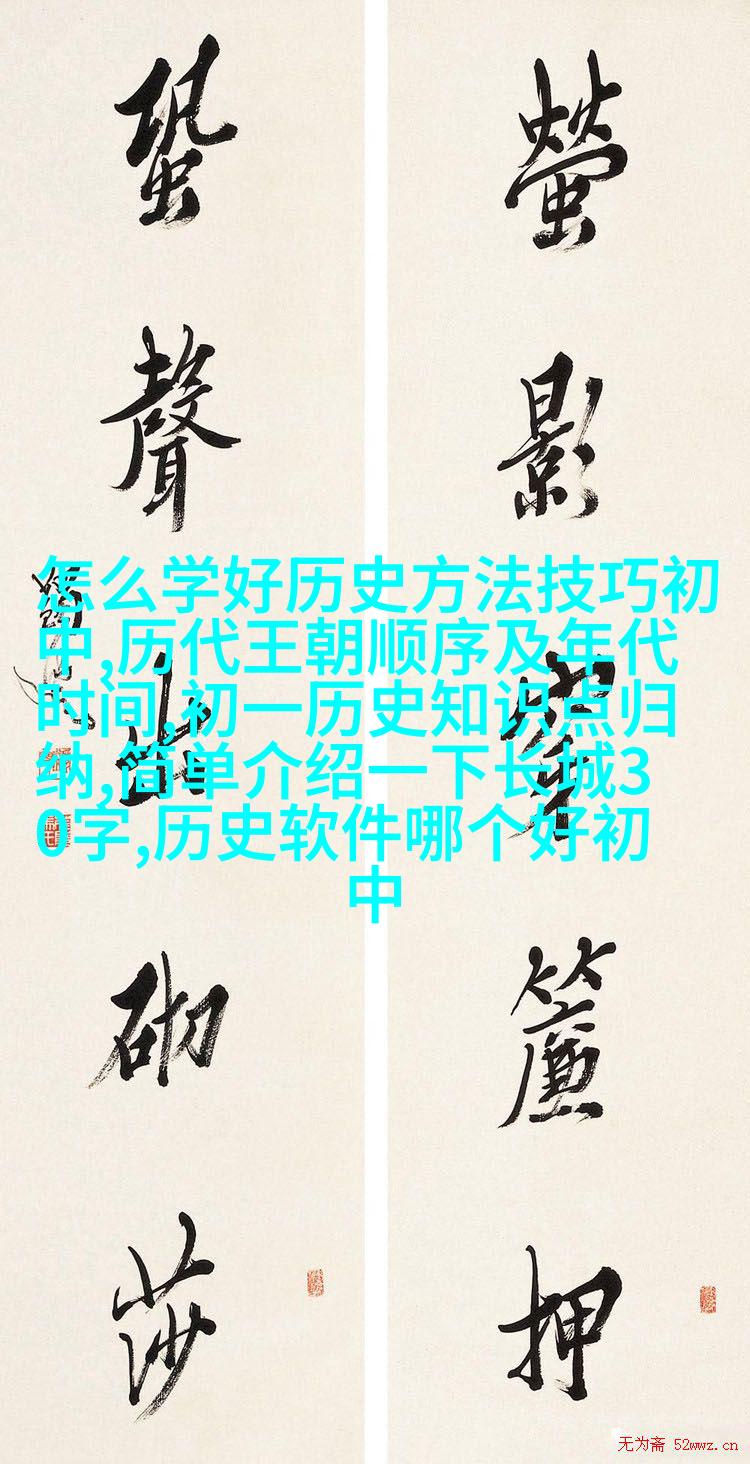 螢影穿簾押
蛩聲出砌莎
怎么学好历史方法技巧初
中,历代王朝顺序及年代
时间,初一历史知识点归
纳,简单介绍一下长城3
0字,历史软件哪个好初
中
无为斋 52wwz.cn